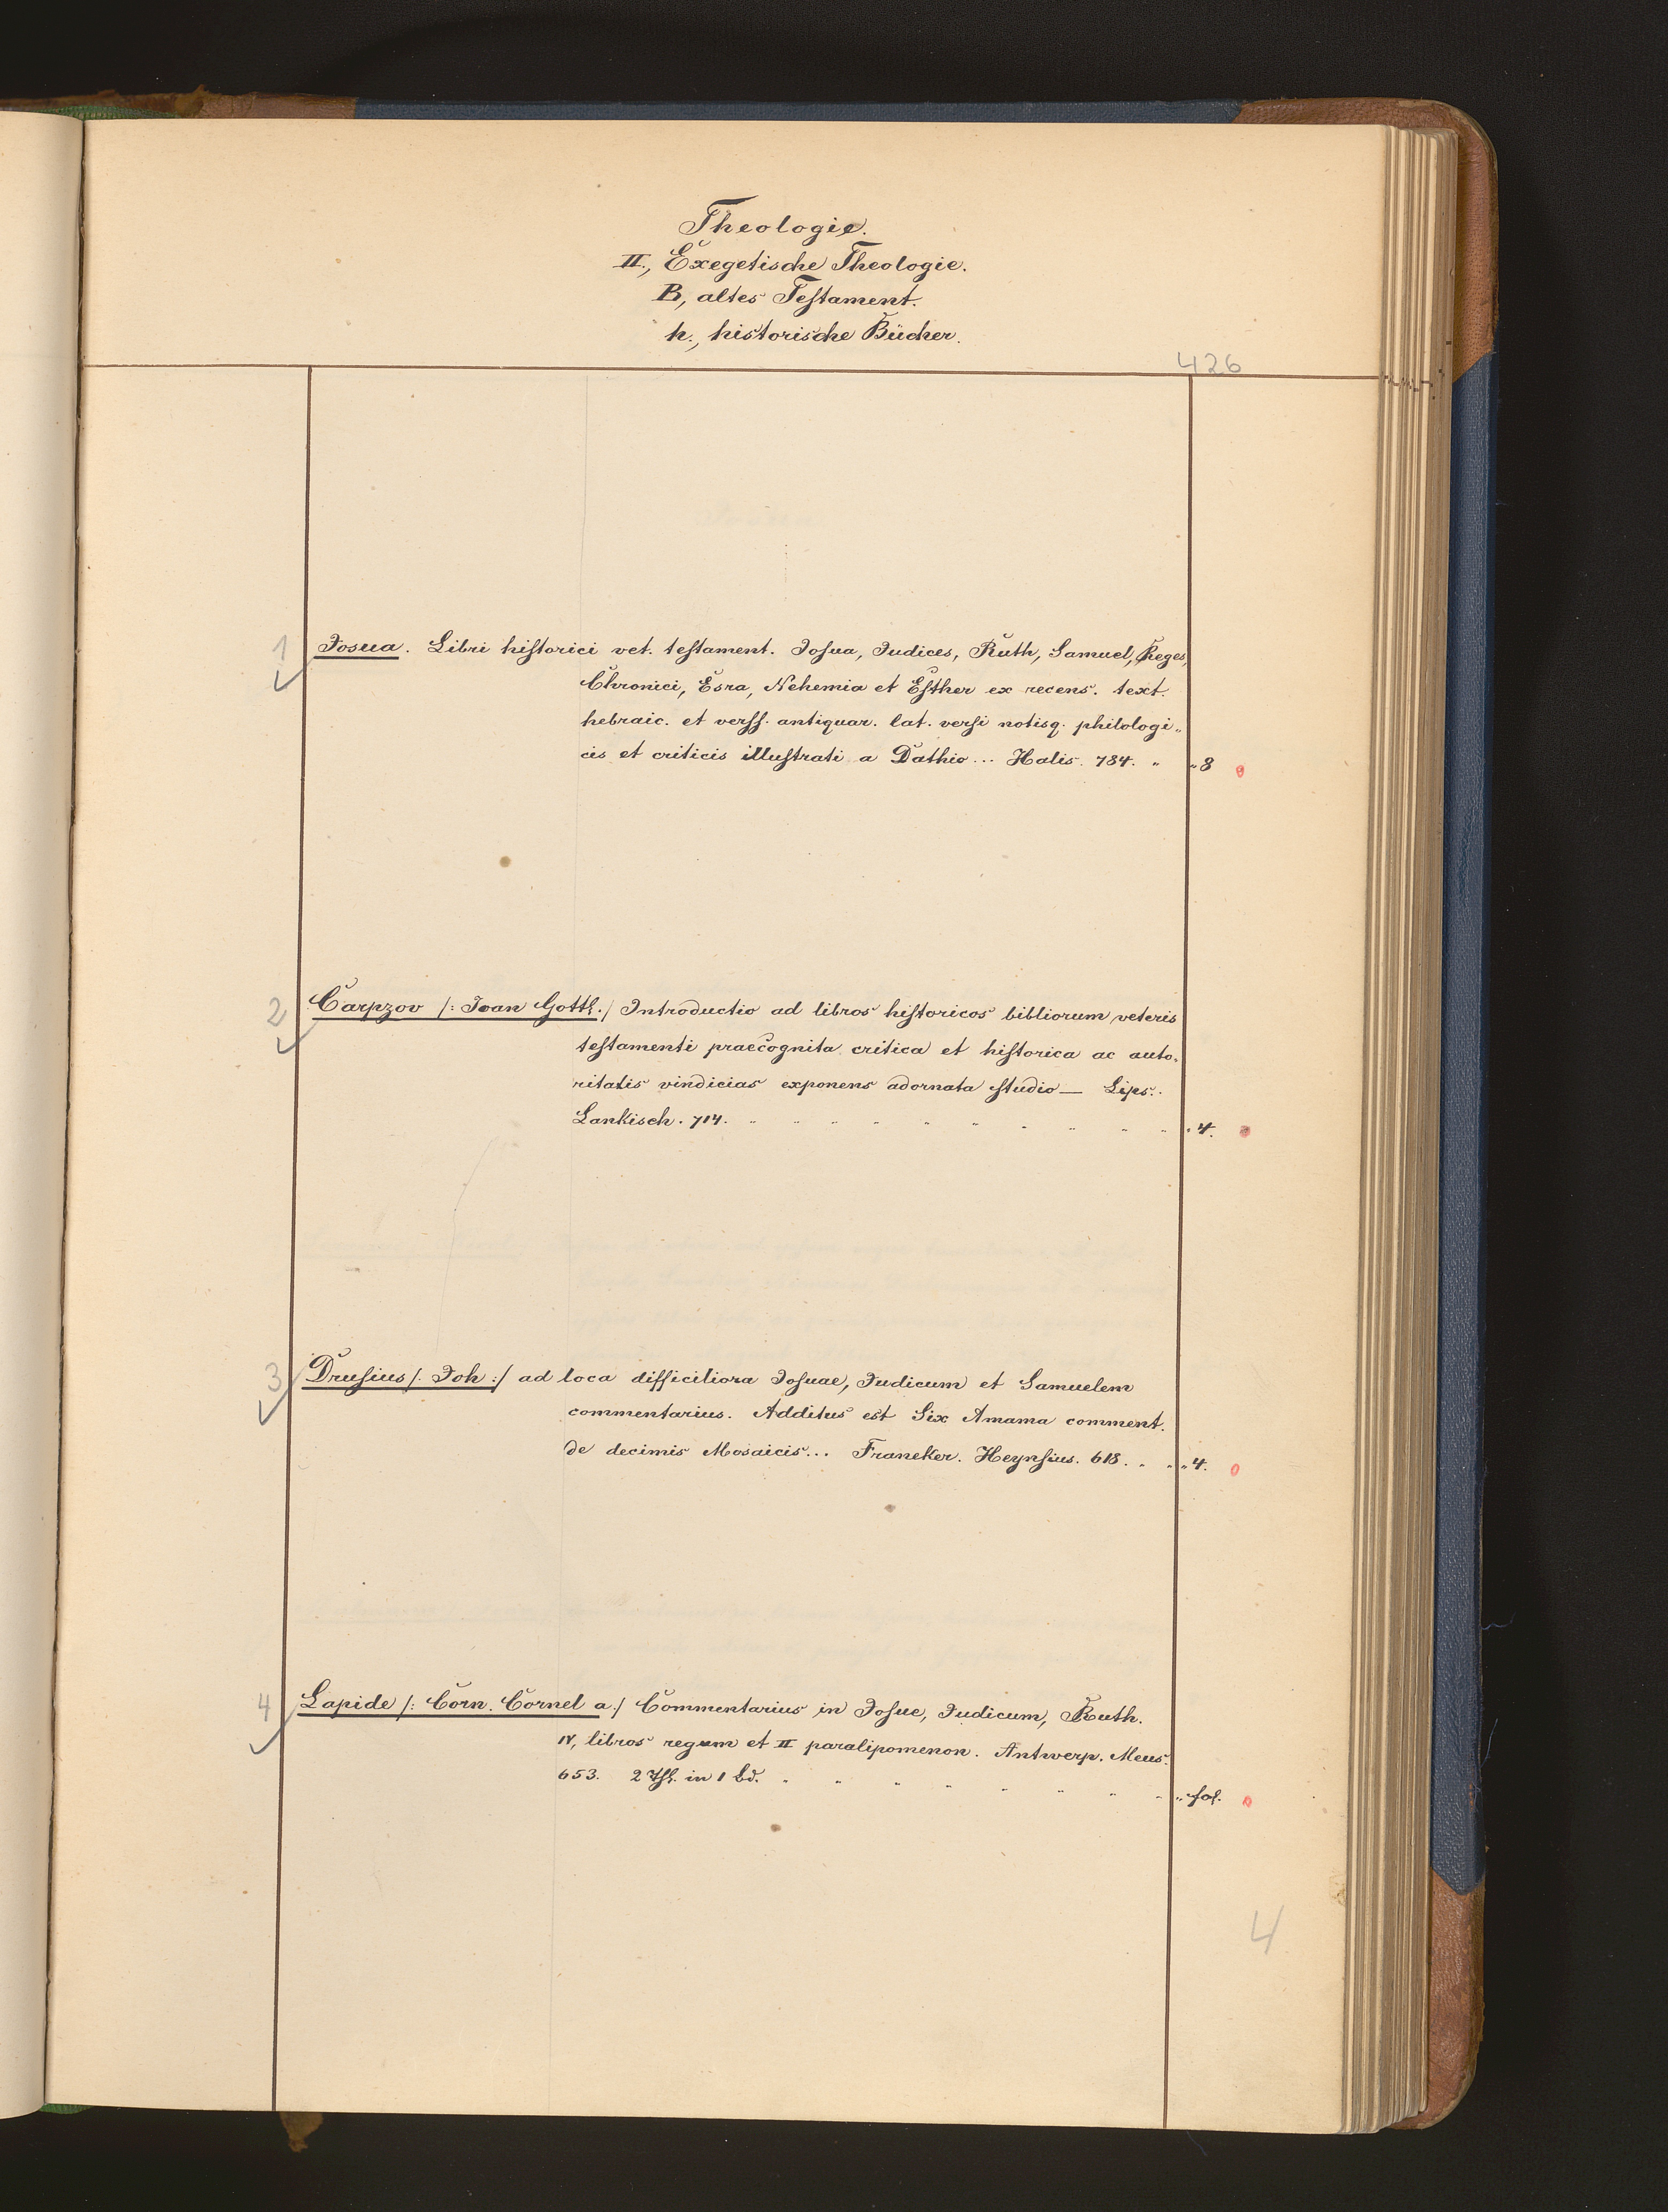 Theologie.
II., Exegetische Theologie.
B, altes Testament.
h., historische Bücher.
426
1 Josua. Libri historici vet. testament. Josua, Judices, Ruth, Samuel, Reges,
Chronici, Esra, Nehemia et Esther ex recens. text.
hebraic. et verss. antiquar. lat. versi notisq. philologi„
cis et criticis illustrati a Dathio... Halis. 784. „ „ 8
2 Carpzov /: Joan Gottl. / Introductio ad libros historicos bibliorum veteris
testamenti praecognita critica et historica ac auto„
ritatis vindicias exponens adornata studio — Lips.
Lankisch. 714. „ „ „ „ „ „ „ „ „ „ „ 4.
3 Drusius /: Joh :/ ad loca difficiliora Josuae, Judicum et Samuelem
commentarius. Additus est Six Amama comment.
de decimis Mosaicis... Franeker. Heynsius. 618. „ „ „ 4.
4 Lapide /: Corn. Cornel a / Commentarius in Josue, Judicum, Ruth.
IV, libros regum et II paralipomenon. Antwerp. Meus.
653. 2 Thl. in 1 Bd. „ „ „ „ „ „ „ „ „ fol.
4